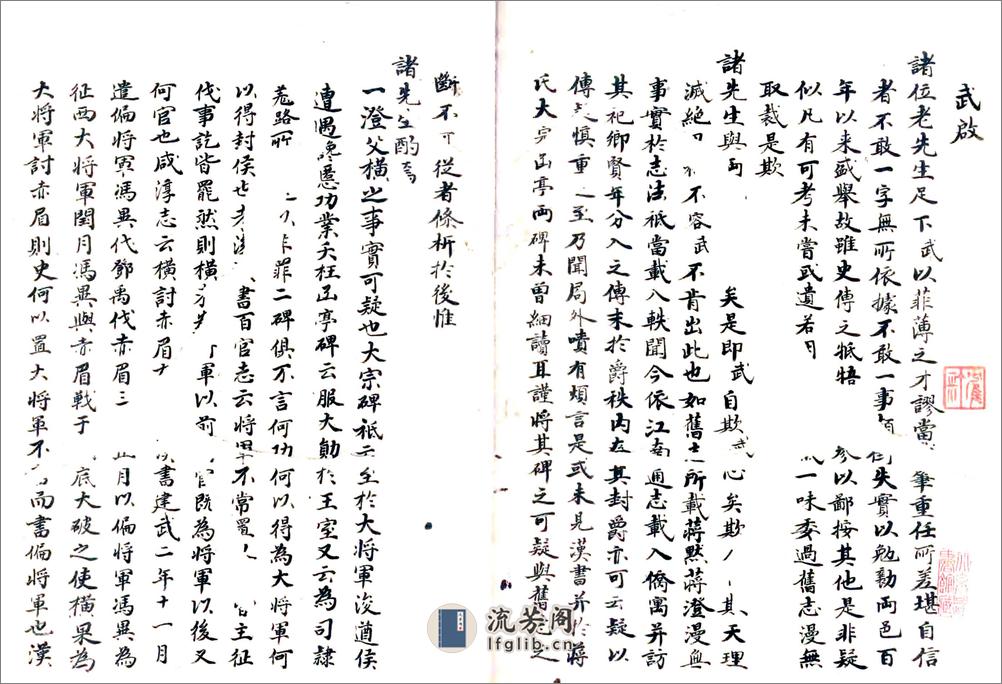 武啟
諸位老先生足下武以菲薄之才謬當 筆重任所差堪自信
者不敢一字無所依據不敢一事 失實以勉勷兩邑百
年以來盛舉故雖史傳之牴牾 參以鄙按其他是非疑
似凡有可考未嘗或遺若 一味委過舊志漫無
取裁是欺
諸先生與 矣是即武自欺 心矣欺 其天理
滅絕 不容武不肯出此也如舊 所載蔣默蔣澄漫無
事實於志法祗當載入軼聞今依江南通志載入僑寓并訪
其祀鄉賢年分入之傳末於爵秩內 其封爵亦可云疑以
傳 慎重 至乃聞局外嘖有煩言是或未見漢書并於蔣
氏大宗函亭兩碑未曾細讀耳謹將其碑之可疑與舊 之
斷不可從者條析於後惟
諸先生酌焉
一澄父橫之事實可疑也大宗碑祗 至於大將軍浚遒侯
遭遇讒慝功業夭枉函亭碑云服大勛於王室又云為司隸
羗路所 二碑俱不言何功何以得為大將軍何
以得封侯 書百官志云將軍不常置 主征
伐事訖皆罷然則橫 軍以前 官既為將軍以後又
何官也咸淳志云橫討赤眉 書建武二年十一月
遣偏將軍馮異代鄧禹伐赤眉三 月以偏將軍馮異為
征西大將軍閏月馮異與赤眉戰于 底大破之使橫果為
大將軍討赤眉則史何以置大將軍不 而書偏將軍也漢
流芳阁
lfglib.cn